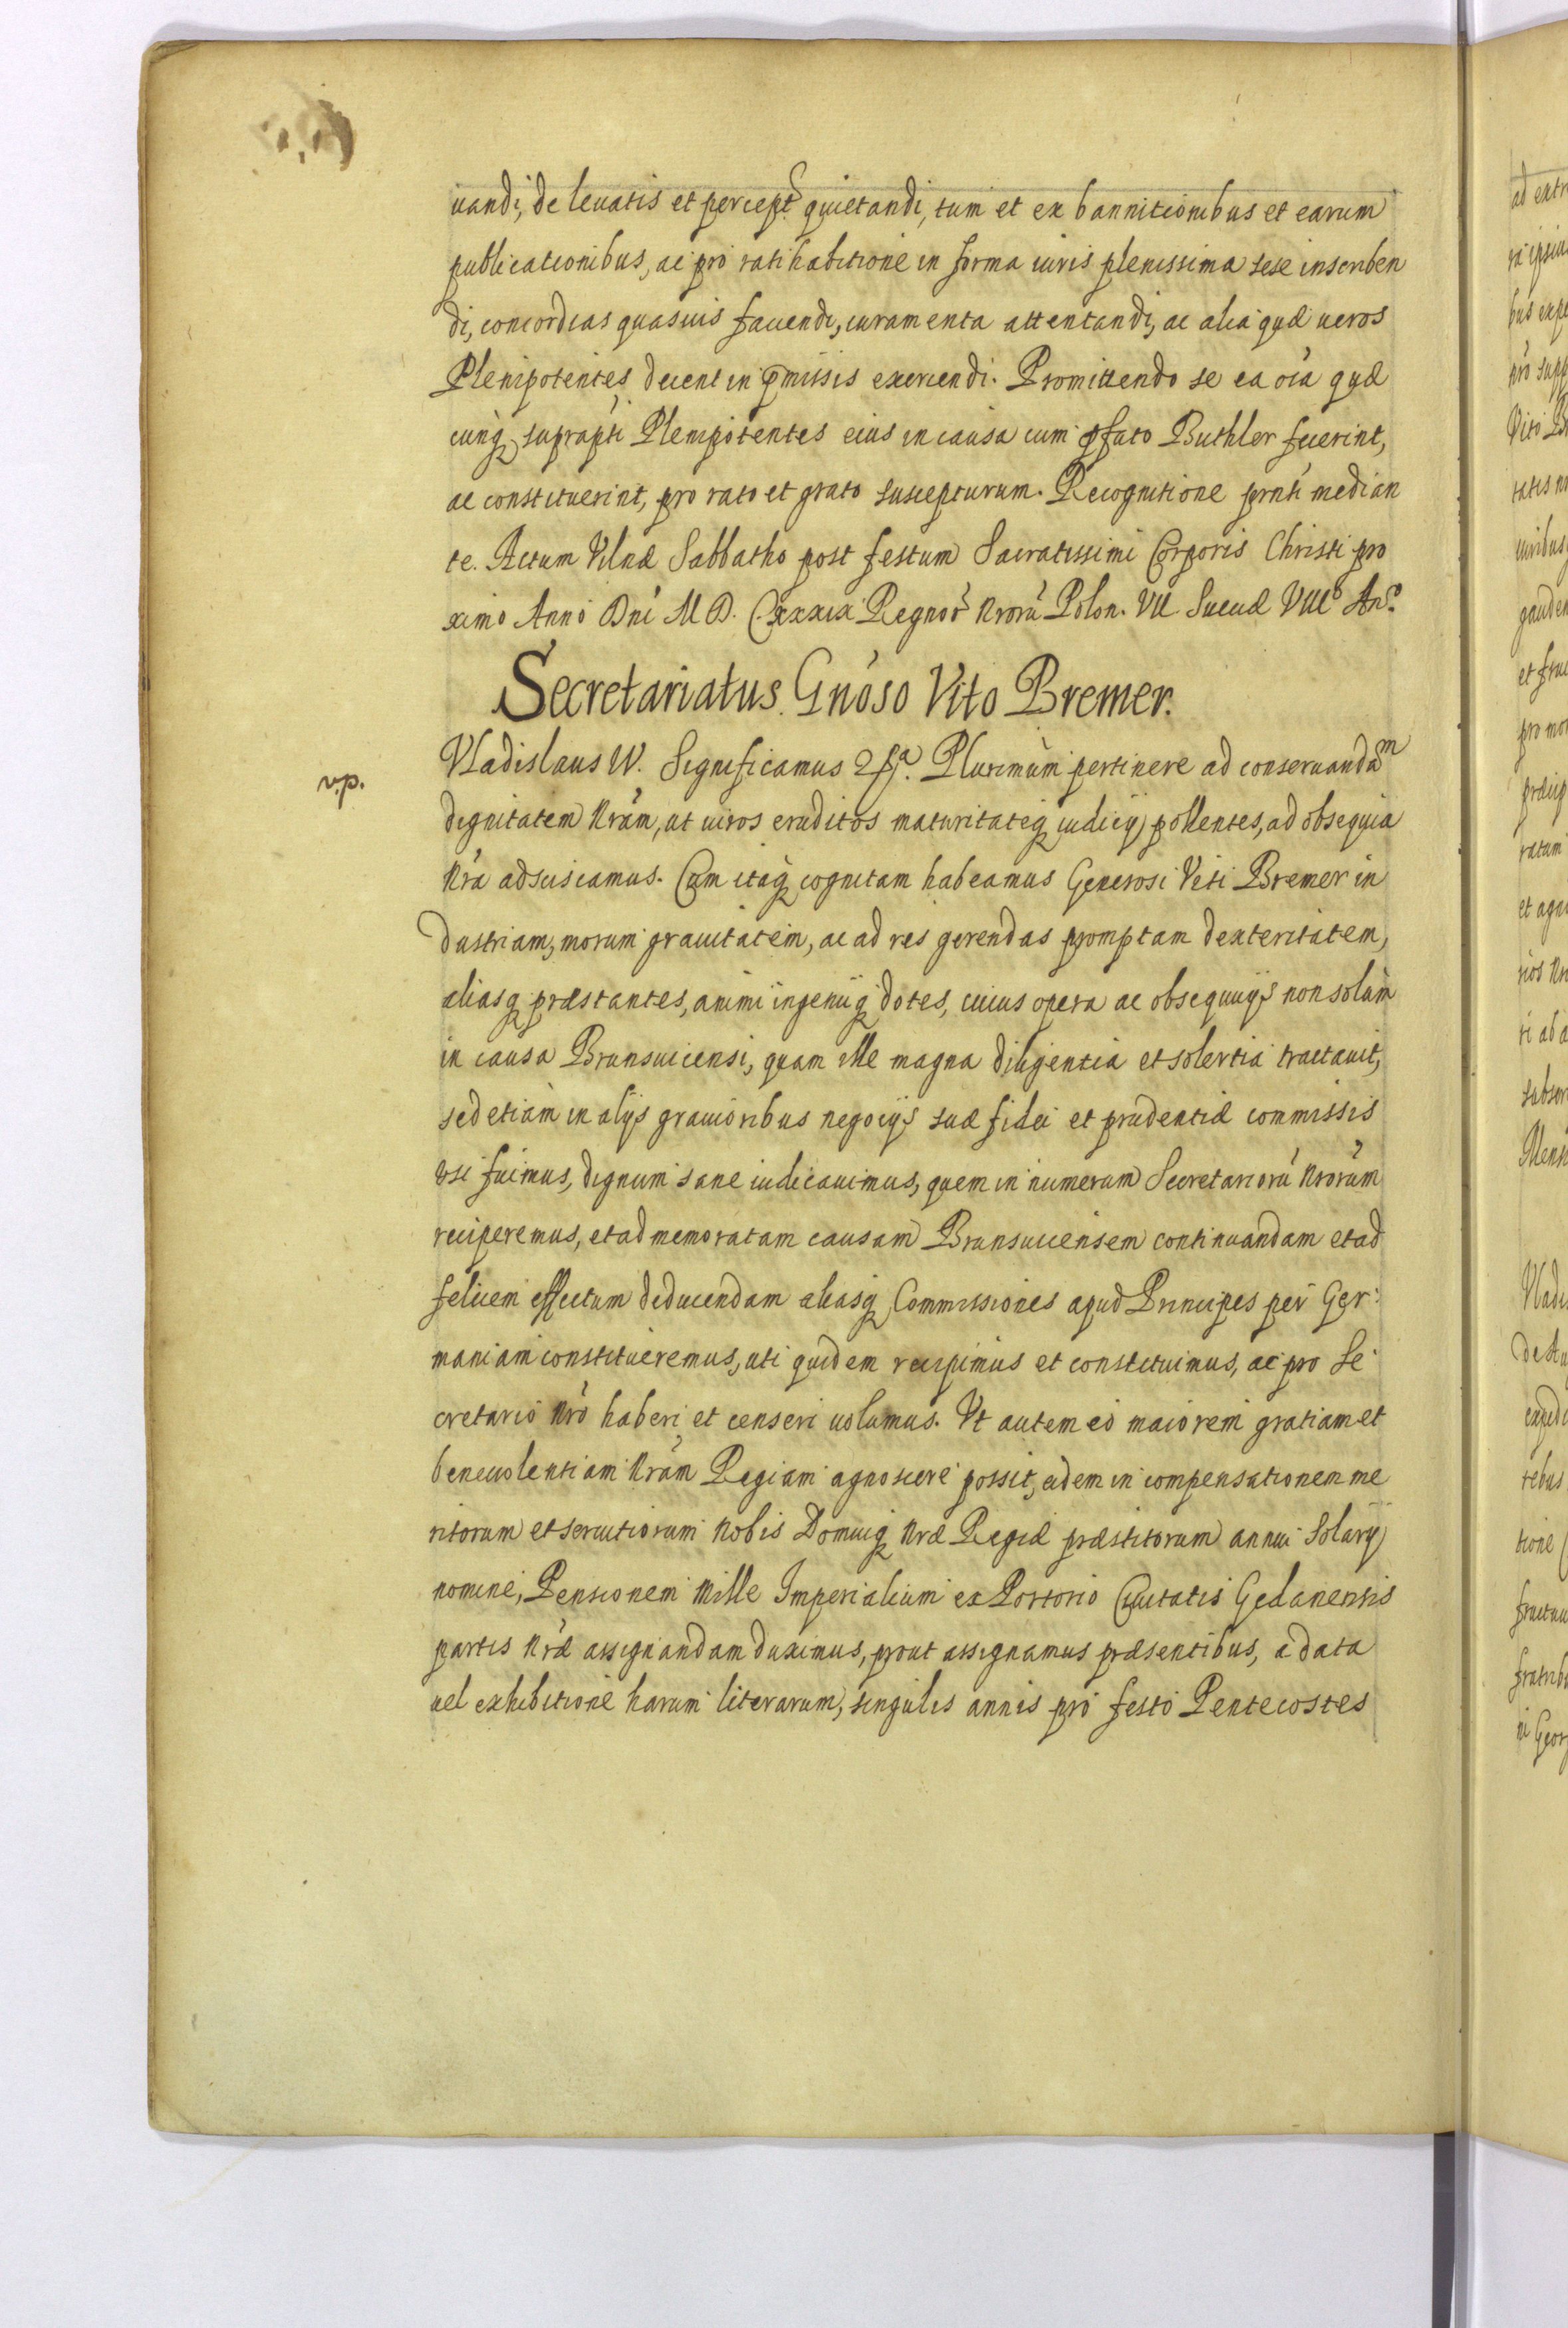 uandi, de leuatis et percept. quietandi, tum et ex bannitionibus et earum
publicationibus, ac pro ratihabitione in forma iuris plenissima sese inscriben
di, concordias quasuis faciendi, iuramenta attentandi, ac alia quæ ueros
Plenipotentes decent in p̄missis exercendi. Promittendo se ea oı̃a quæ
cunq̧ suprap̃ti Plenipotentes eius in causa cum p̄fato Buthler fecerint,
ac constituerint, pro rato et grato suscepturum. Recognitione prñti median
te. Actum Vilnæ Sabbatho post festum Sacratissimi Corporis Christi pro
ximo Anno Dnĩ M D. C. xxxix Regnoŕ Nrorũ Polon. VII Sueciæ VIIIᵒ Anᵒ.
Secretariatus Gnõso Vito Bremer.
v.p.
Vladislaus IV. Significamus Plurimùm pertinere ad conseruandaᵐ
dignitatem Nrãm, ut uiros eruditos maturitateq̧ iudicij pollentes, ad obsequia
Nrã adsciscamus. Cum itaq̧ cognitam habeamus Generosi Viti Bremer in
dustriam, morum grauitatem, ac ad res gerendas promptam dexteritatem,
aliasq̧ præstantes, animi ingenijq̧ dotes, cuius opera ac obsequijs non solùm
in causa Brunsuicensi, quam ille magna diligentia et solertia tractauit,
sed etiàm in alijs grauioribus negocijs suæ fidei et prudentiæ commissis
vsi fuimus, dignum sane iudicauimus, quem in numerum Secretariorũ Nrorũm
reciperemus, et ad memoratam causam Brunsuicensem continuandam et ad
felicem effectum deducendam aliasq̧ Commissiones apud Principes per Ger:
maniam constitueremus, uti quidem recipimus et constituimus, ac pro Se
cretario Nrõ haberi et censeri uolumus. Vt autem eò maiorem gratiam et
beneuolentiam Nrãm Regiam agnoscere possit, eidem in compensationem me
ritorum et seruitiorum Nobis Domuiq̧ Nræ̃ Regiæ præstitorum annui Solarij
nomine, Pensionem Mille Imperialium ex Portorio Ciuitatis Gedanensis
partis Nræ̃ assignandam duximus, prout assignamus præsentibus, a data
uel exhibitione harum literarum, singulis annis pro festo Pentecostes